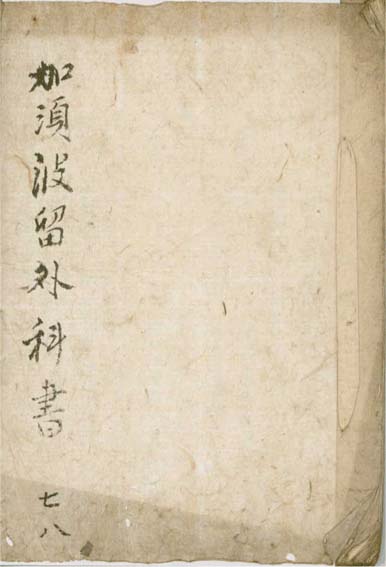 加須波留外科書 七八